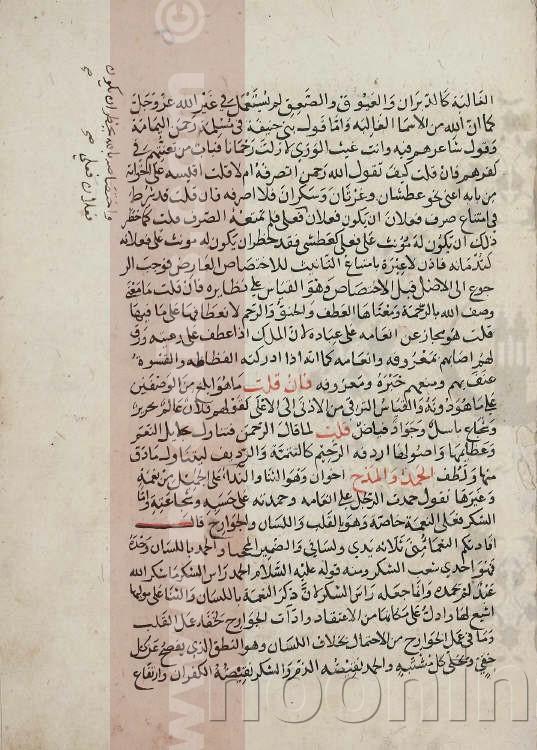 الغالبة كالدبران والعيوق والصعق لم يستعمل في غير الله عز وجل
كما ان الله من الاسما الغالبة واما قول بني حنيفة في مسيلمة رحمن اليمامة
وقول شاعرهم فيه وانت غيث الوري لا زلت رحمانا فباب من تعنتهم في
كفرهم فان قلت كيف تقول الله رحمن اتصرفه ام لا قلت اقيسه على اخواته
من بابه اعني نحو عطشان وغرثان وسكران فلا اصرفه فان قلت قد شرط
في امتناع صرف فعلان ان يكون فعلان فعلى فلم تمنعه الصرف قلت كما حظر
ذلك ان يكون له مؤنث على فعلى كعطشى فقد حظر ان يكون له مونث على فعلانة
كندمانة فاذن لا عبرة بامتناع التانيث للاختصاص العارض فوجب الر
جوع الى الاصل قبل الاختصاص وهو القياس على نظايره فان قلت ما معنى
وصف الله بالرحمة ومعناها العطف والحنو والرحم لانعطافها على ما فيها
قلت هو مجاز عن انعامه على عباده لان الملك اذا عطف على رعيته ورق
لهم اصابهم بمعروفه وانعامه كما انه اذا ادركته الفظاظة والقسوة
عنف بهم ومنعهم خيره ومعروفه فان قلت ما هو ابلغ من الوصفين
على ما هو دونه والقياس الترقي من الادنى الى الاعلى كقولهم فلان عالم نحرير
وشجاع باسل وجواد فياض قلت لما قال الرحمن فتناول جلايل النعم
وعظايمها واصولها اردفه الرحيم كالتتمة والرديف ليتناول ما دق
منها ولطف الحمد والمدح اخوان وهو الثنا والندا على الجميل من نعمة
وغيرها تقول حمدت الرجل على انعامه وحمدته على حسبه وشجاعته واما
الشكر فعلى النعمة خاصة وهو بالقلب واللسان والجوارح قال
افادتكم النعما مني ثلاثة يدي ولساني والضمير المحجبا والحمد باللسان وحده
فهو احدى شعب الشكر ومنه قوله عليه السلام الحمد راس الشكر ما شكر الله
عبد لم يحمده وانما جعله راس الشكر لان ذكر النعمة باللسان والثنا على موليها
اشيع لها وادل على مكانها من الاعتقاد واداب الجوارح لخفا عمل القلب
وما في عمل الجوارح من الاحتمال بخلاف اللسان وهو النطق الذي يفصح عن كل
خفي ويجلي كل مشتبه والحمد نقيضه الذم والشكر نقيضه الكفران وارتفاع
واختصاصه بالله يحظر ان يكون
فعلان فعلى صح